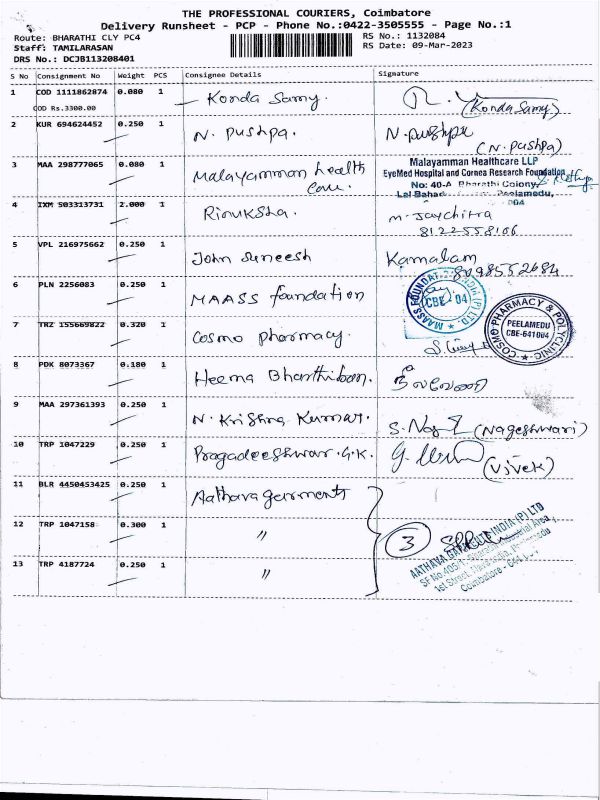 THE PROFESSIONAL COURIERS, Coimbatore
Delivery Runsheet - PCP - Phone No.:0422-3505555 - Page No.:1
Route: BHARATHI CLY PC4
RS No.: 1132084
Staff: TAMILARASAN
RS Date: 09-Mar-2023
DRS No.: DCJB113208401
S No Consignment No Weight PCS Consignee Details Signature
1 COD 1111862874 0.080 1 Konda Samy. (Konda Samy)
COD Rs.3300.00
2 KUR 694624452 0.250 1 N. Pushpa. N. Pushpa
(N. Pushpa)
3 MAA 298777065 0.080 1 Malayamman health Malayamman Healthcare LLP
care. EyeMed Hospital and Cornea Research Foundation
No: 40-A Bharathi Colony,
Peelamedu,
004
4 IXM 503313731 2.000 1 Rinuksha. M. Jaychitra
8122558106
5 VPL 216975662 0.250 1 John Suneesh Kamalam
8098552684
6 PLN 2256083 0.250 1 MAASS foundation
MAASS FOUNDATION (P) LTD. CBE - 04
7 TRZ 155669822 0.320 1 Cosmo pharmacy.
COSMO PHARMACY & POLYCLINIC
PEELAMEDU
CBE-641004
8 PDK 8073367 0.180 1 Heema Bharthiban.
9 MAA 297361393 0.250 1 N. Krishna Kumar. (Nageshwari)
10 TRP 1047229 0.250 1 Pragadeeshwar. G.K. (Vivek)
11 BLR 4450453425 0.250 1 Aathava garments
12 TRP 1047158 0.300 1 〃 3
13 TRP 4187724 0.250 1 〃
AATHAVA GARMENT INDIA (P) LTD
1st Street,
Coimbatore